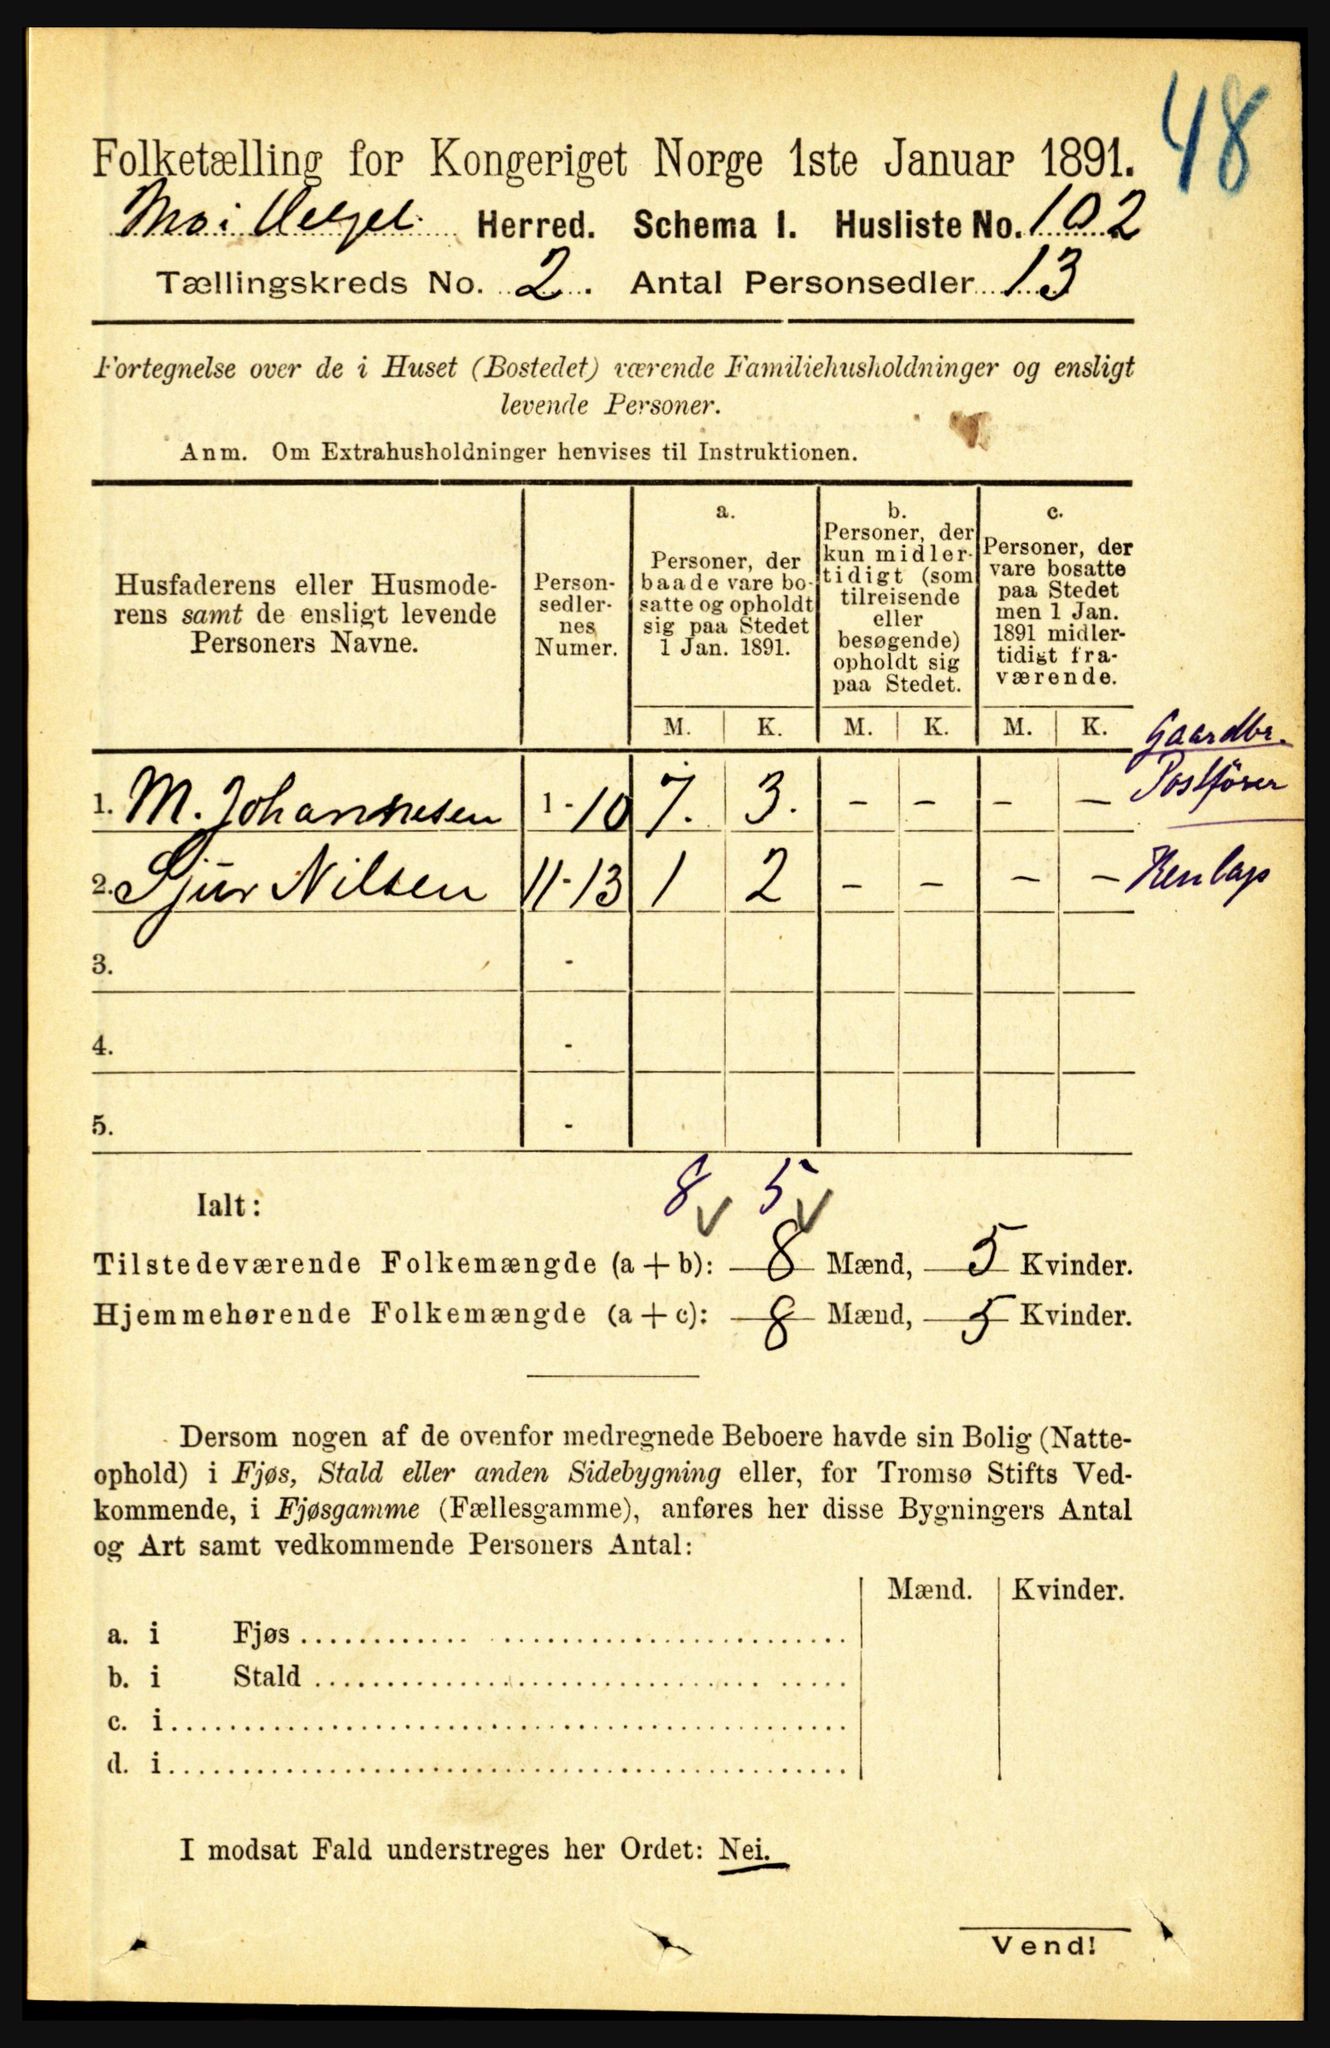 48
Folketælling for Kongeriget Norge 1ste Januar 1891.
Mo i Herred. Schema I. Husliste No. 102
Tællingskreds No. 2. Antal Personsedler 13
Fortegnelse over de i Huset (Bostedet) værende Familiehusholdninger og ensligt
levende Personer.
Anm. Om Extrahusholdninger henvises til Instruktionen.
Husfaderens eller Husmode-
rens samt de ensligt levende
Personers Navne.
Person-
sedler-
nes
Numer.
a.
Personer, der
baade vare bo-
satte og opholdt
sig paa Stedet
1 Jan. 1891.
b.
Personer, der
kun midler-
tidigt (som
tilreisende
eller
besøgende)
opholdt sig
paa Stedet.
c.
Personer, der
vare bosatte
paa Stedet
men 1 Jan.
1891 midler-
tidigt fra-
værende.
M. K. M. K. M. K.
Gaardbr.
Postfører
1. M. Johannesen 1-10 7. 3. - - - -
2. Sjur Nilsen 11-13 1 2 - - - -
3. -
4. -
5. -
Ialt: 8 5
Tilstedeværende Folkemængde (a + b): 8 Mænd, 5 Kvinder.
Hjemmehørende Folkemængde (a + c): 8 Mænd, 5 Kvinder.
Dersom nogen af de ovenfor medregnede Beboere havde sin Bolig (Natte-
ophold) i Fjøs, Stald eller anden Sidebygning eller, for Tromsø Stifts Ved-
kommende, i Fjøsgamme (Fællesgamme), anføres her disse Bygningers Antal
og Art samt vedkommende Personers Antal:
Mænd. Kvinder.
a. i Fjøs
b. i Stald
c. i
d. i
I modsat Fald understreges her Ordet: Nei.
Vend!